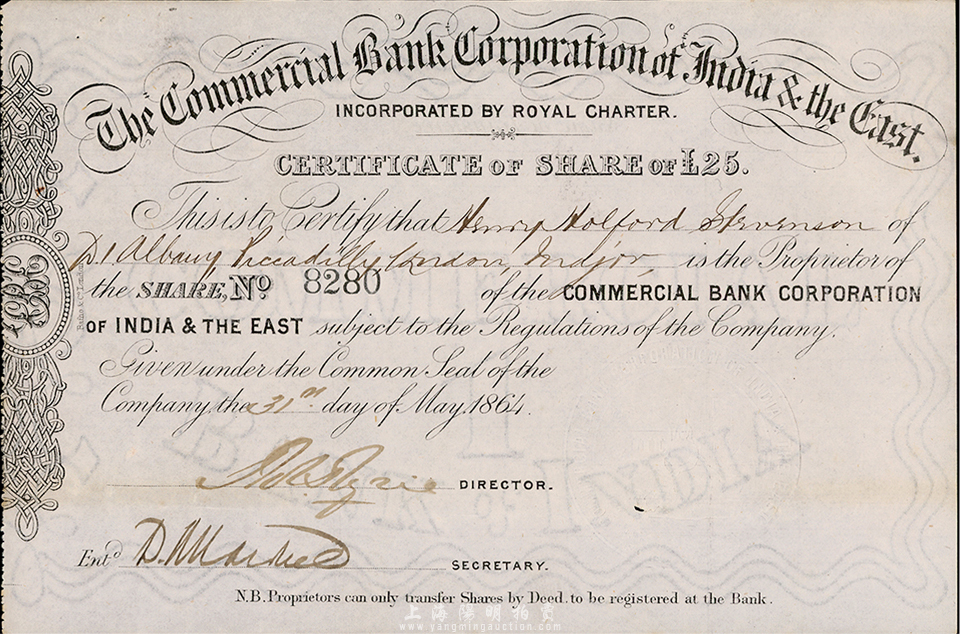 The Commercial Bank Corporation of India & the East.
INCORPORATED BY ROYAL CHARTER.
CERTIFICATE OF SHARE OF £25.
This is to Certify that Henry Holford Stevenson of
Albany Piccadilly London, is the Proprietor of
the SHARE, No 8280 of the COMMERCIAL BANK CORPORATION
OF INDIA & THE EAST subject to the Regulations of the Company.
Given under the Common Seal of the
Company, the 31st day of May, 1864.
DIRECTOR.
Entd. SECRETARY.
N.B. Proprietors can only transfer Shares by Deed. to be registered at the Bank.
上海陽明拍賣
www.yangmingauction.com